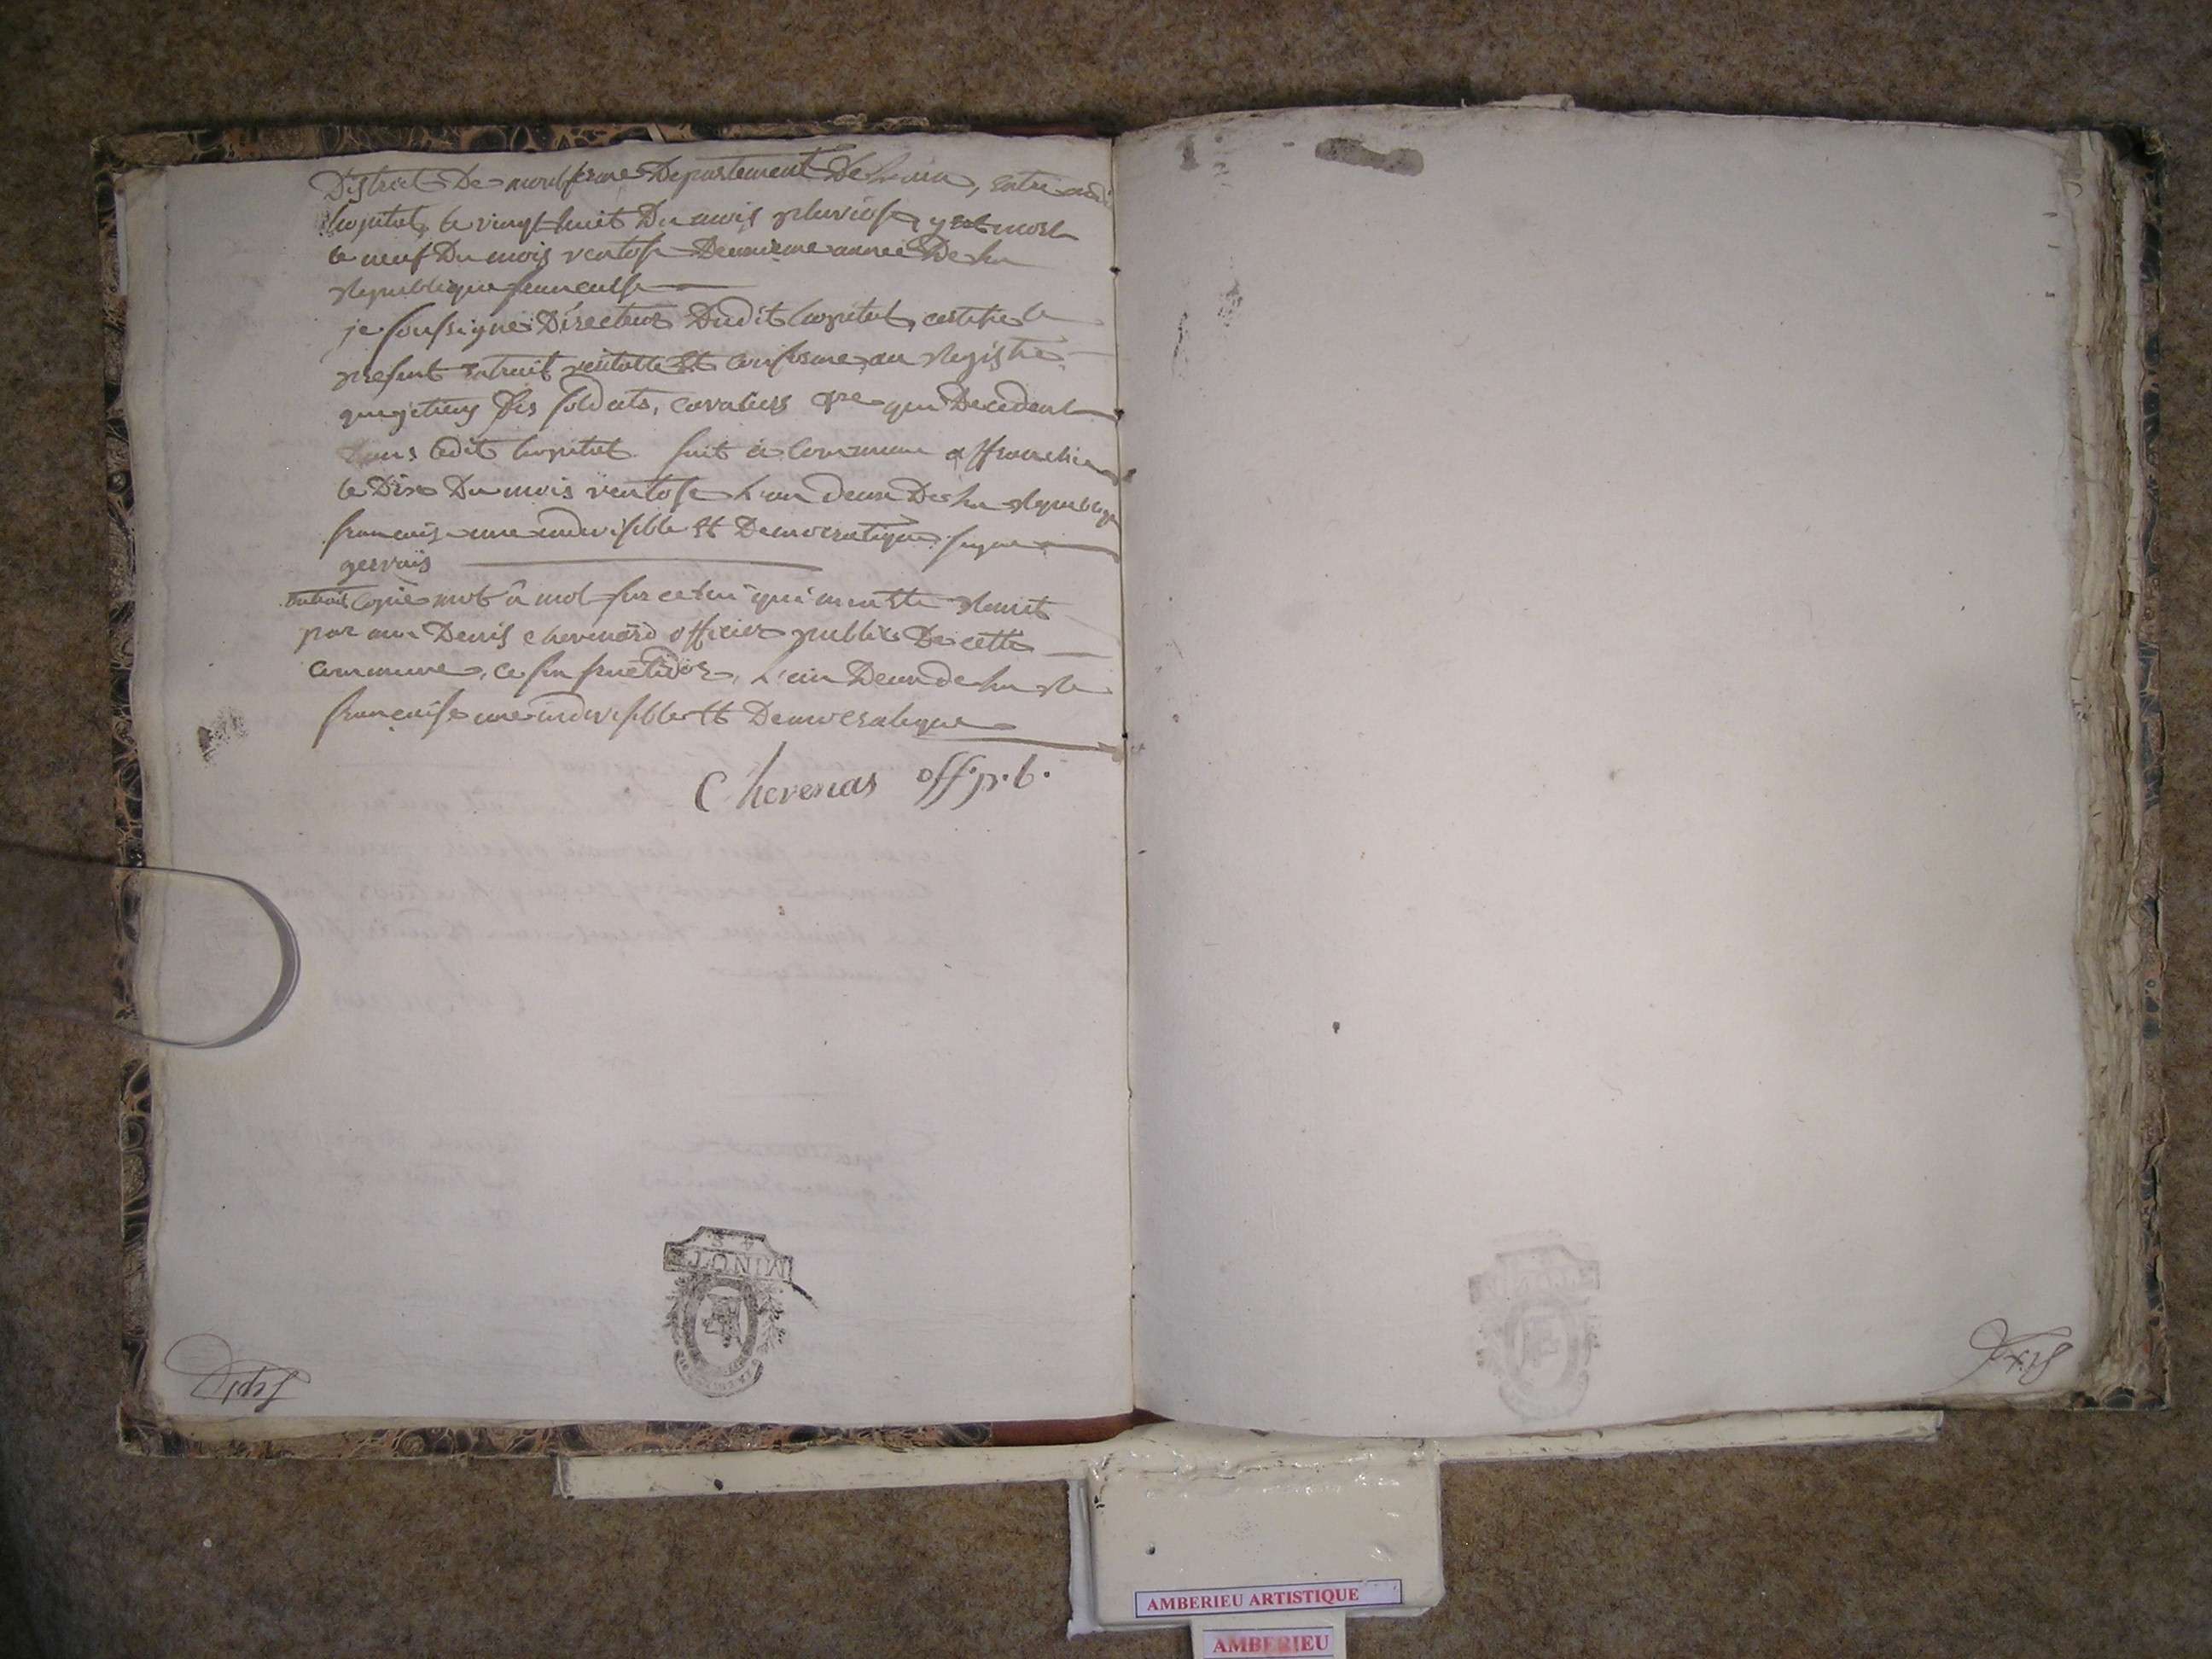 District De montferme Departement De Lain, entré audi
hopital, le vingt huit Du mois pluviose, y est mort
le neuf Du mois ventose Deuxieme année De La
Republique francaise
je soussigné Directeur Dudit hopital, certifie le
present extrait veritable Et conforme au Registre
que je tiens Des soldats, cavaliers &re qui Decedent
Dans ledit hopital fait à Commune affranchie
le Dix Du mois ventose L'an deux De La Republique
francaise une indivisible Et Democratique signé
gervais
extrait Copié mot à mot sur celui qui m'a été Remit
par moi Denis Chevenard officier public De cette
commune, ce fructidor, L'an Deux de La Re
francaise une indivisible Et Democratique
Chevenas off.p.b.
MINUTE
4 S
AMBERIEU ARTISTIQUE
AMBERIEU